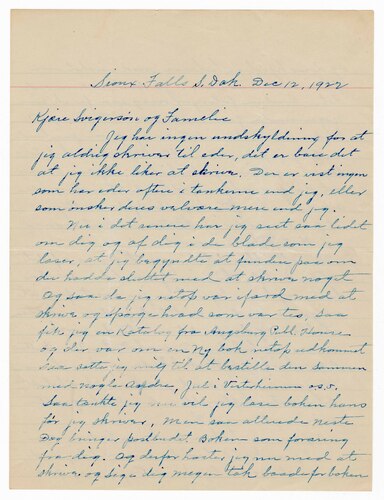 Sioux Falls S. Dak. Dec 12, 1922
Kjære Svigersøn og Familie
Jeg har ingen undskyldning for at
jeg aldrig skriver til eder, det er bare det
at jeg ikke liker at skrive. Der er vist ingen
som har eder oftere i tankerne end jeg, eller
som ønsker deres velvære mere end jeg.
Nu i det senere har jeg seet saa lidet
om dig og af dig i de blade som jeg
læser, at jeg begyndte at fundere paa om
du hadde sluttet med at skrive noget
Og saa da jeg netop var ifærd med at
skrive og spørge hvad som var tes, saa
fik jeg en Katalog fra Augsburg Publ. House
og der var om en Ny bok netop udkommet
Saa satte jeg mig til at bestille den sammen
med nogle Andre, Jul i Vesterheimen o.s.v.
Saa tænkte jeg nu vil jeg læse boken hans
før jeg skriver, Men saa allerede neste
Dag bringer postbudet Boken som foræring
fra dig. Og derfor haster jeg nu med at
skrive og sige dig megen tak baade for boken